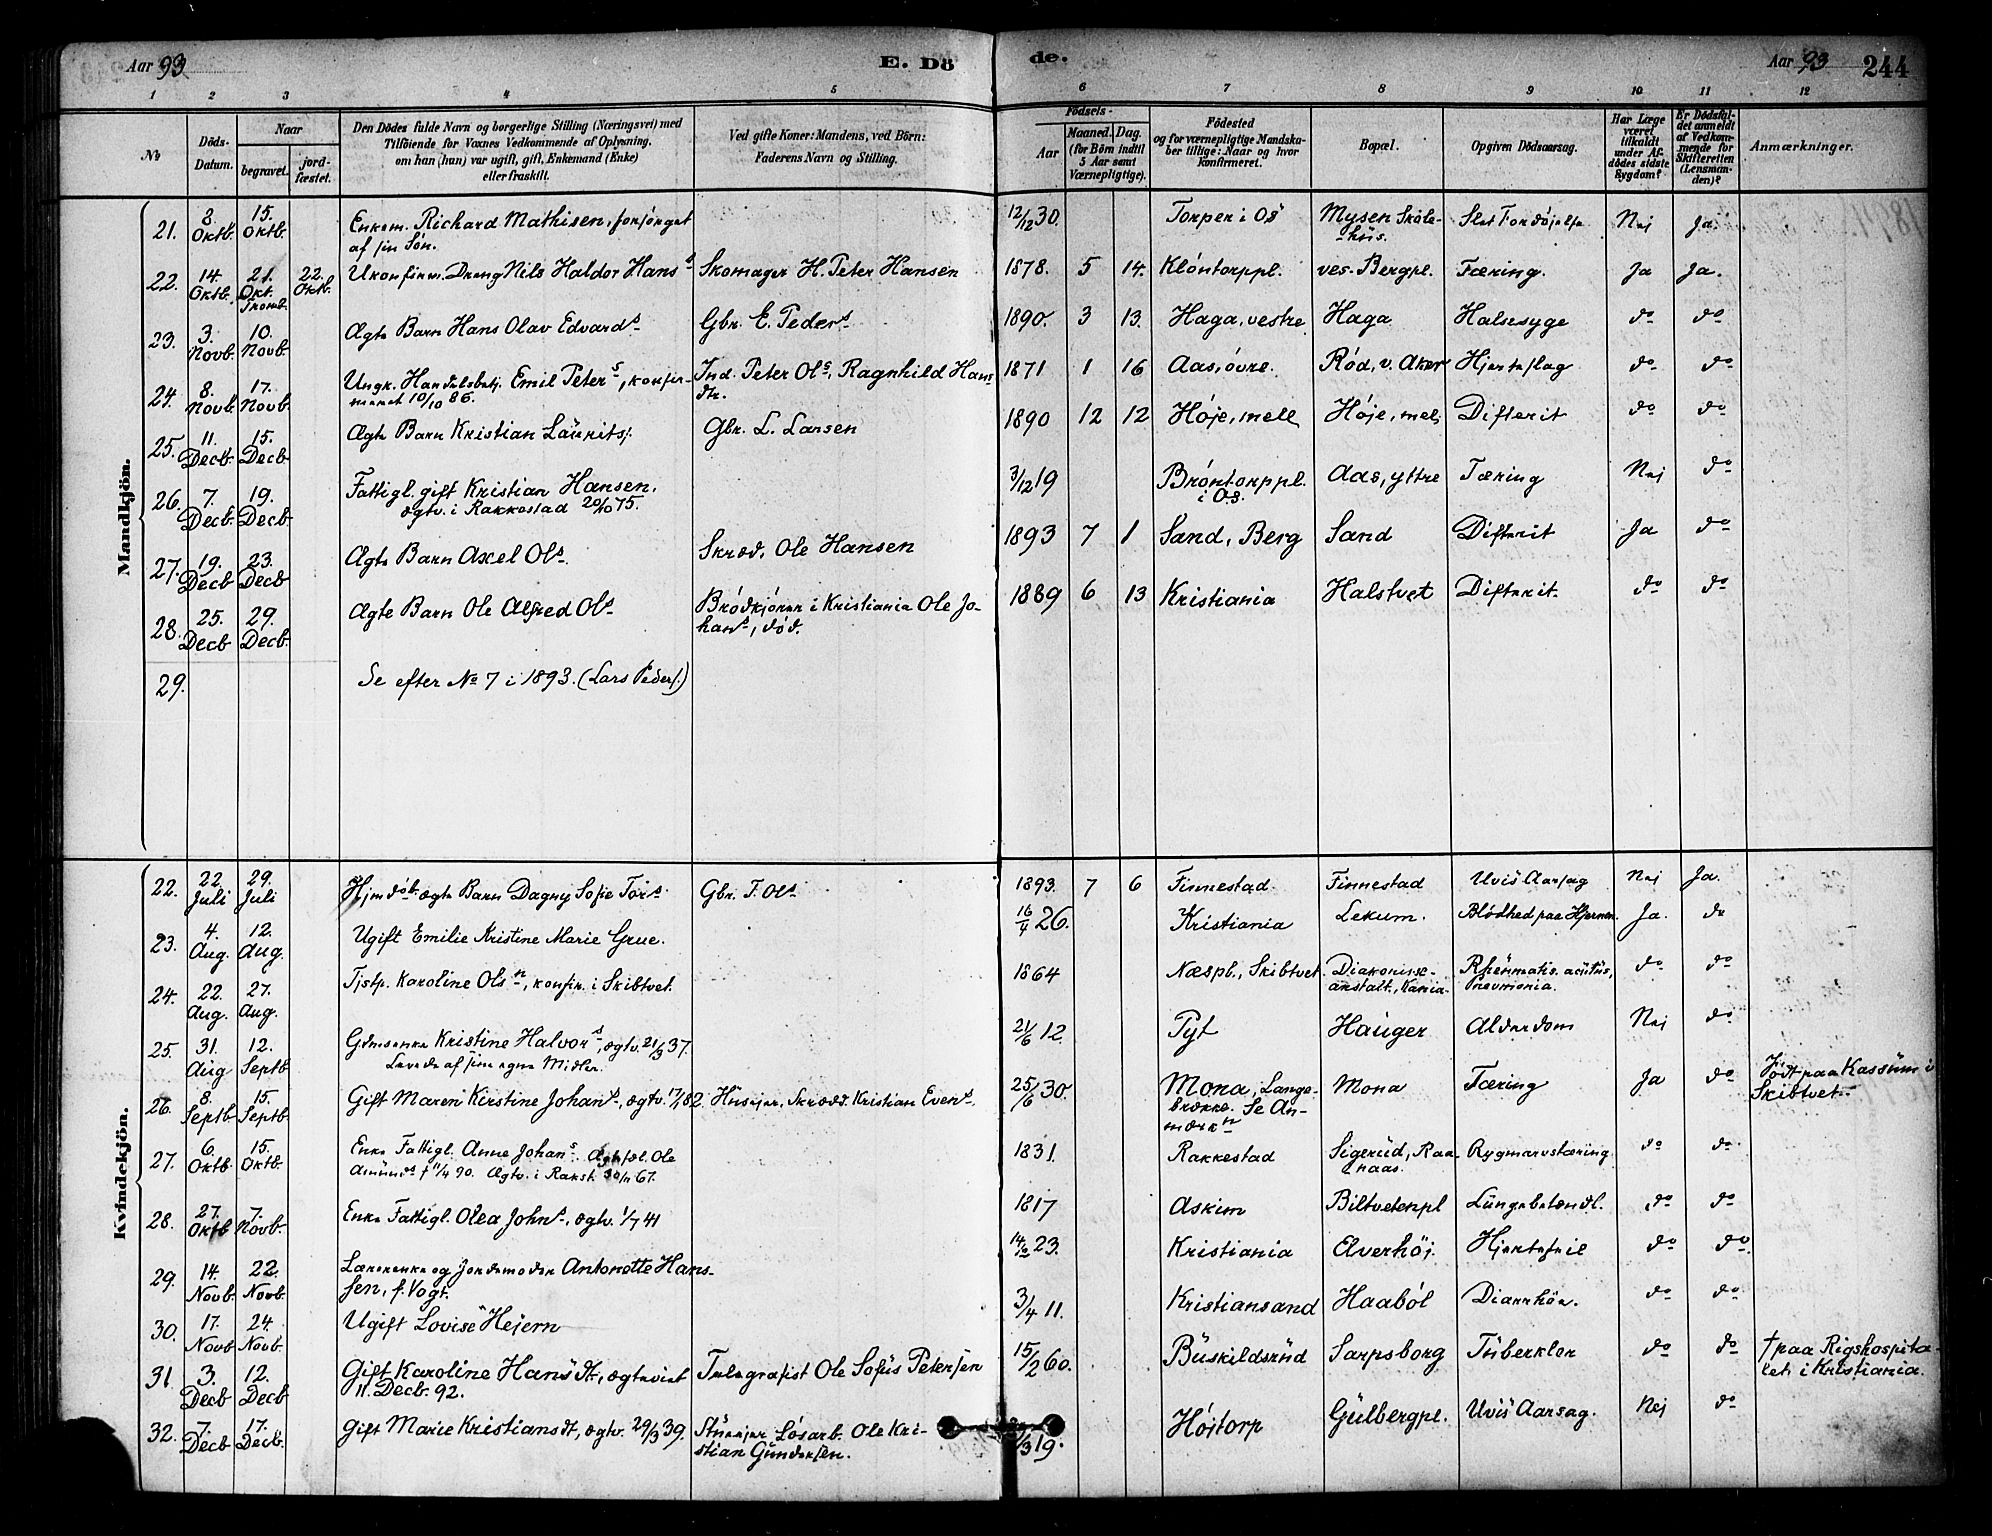 Aar 93 E. Dö
de. Aar 93 244
1 2 3 4 5
6 7 8 9 10 11 12
No
Döds-
Datum.
Naar
begravet.
jord-
fæstet.
Den Dödes fulde Navn og borgerlige Stilling (Næringsvei) med
Tilföiende for Voxnes Vedkommende af Oplysning,
om han (hun) var ugift, gift, Enkemand (Enke)
eller fraskilt.
Ved gifte Koner: Mandens, ved Börn:
Faderens Navn og Stilling.
Födsels-
Aar
Maaned. Dag.
(for Börn indtil
5 Aar samt
Værnepligtige).
Födested
og for værnepligtige Mandska-
ber tillige: Naar og hvor
konfirmeret.
Bopæl.
Opgiven Dödsaarsag.
Har Læge
været
tilkaldt
under Af-
dödes sidste
Sygdom?
Er Dödsfal-
det anmeldt
af Vedkom-
mende for
Skifteretten
(Lensman-
den)?
Anmærkninger.
Mandkjön.
21. 8. Oktb. 15. Oktb. Enkem. Richard Mathisen, forsørget
af sin Søn. 12/12 30. Torper i Os Mysen Skole-
hus. Slet Fordøjelse Nej Ja
22. 14. Oktb. 21. Okt. Tromb. 22. Oktb. Ukonfirm. Dreng Nils Haldor Hans s Skomager H. Peter Hansen 1878. 5 14. Kløntorppl. ves. Bergpl. Tæring. Ja Ja.
23. 3. Novb. 10. Novb. Ægte Barn Hans Olav Edvard s Gbr. E. Peder s 1890. 3 13. Haga, vestre Haga Halssyge do do
24. 8. Novb. 17. Novb. Ungk. Handelsbetj. Emil Peter s, konfir-
meret 10/10 86. Ind. Peter Ol s, Ragnhild Hans
dtr. 1871 1 16 Aas, øvre. Rød, v. Aker Hjerteslag do do
25. 11. Decb. 15. Decb. Ægte Barn Kristian Laurits s. Gbr. L. Larsen 1890 12 12 Høje, mell Høje, mel. Difterit do do
26. 7. Decb. 19. Decb. Fattigl. gift Kristian Hansen,
ægtv. i Rakkestad 20/10 75. 3/12 19 Brøntorppl.
i Os. Aas, yttre Tæring Nej do
27. 19. Decb 23. Decb Ægte Barn Axel Ol s. Skræd. Ole Hansen 1893 7 1 Sand, Berg Sand Difterit Ja do
28. 25. Decb 29. Decb. Ægte Barn Ole Alfred Ol s Brødkjører i Kristiania Ole Jo-
han s, død. 1889 6 13 Kristiania Halstvet Difterit do do
29. Se efter No 7 i 1893. (Lars Peders.)
Kvindekjön.
22. 22. Juli 29. Juli Hjmdøb. ægte Barn Dagny Sofie Tor s. Gbr. T. Ol s 1893. 7 6 Finnestad. Finnestad Uvis Aarsag Nej Ja.
23. 4. Aug. 12. Aug. Ugift Emilie Kristine Marie Grue. 16/4 26. Kristiania Lekum. Blødhed paa Hjernen. Ja. do
24. 22. Aug. 27. Aug. Tjstp. Karoline Ols n, konfir. i Skibtvet. 1864 Næspl., Skibtvet. Diakonisse-
anstalt, Kania. Rheumatis. acutus,
Pneumonia. do do
25. 31. Aug 12. Septb Gdmsenke Kristine Halvor s, ægtv. 21/3 37.
Levede af sine egne Midler. 21/6 12. Pyt Hauger Alderdom Nej do
26. 8. Septb. 15. Septb Gift Maren Kirstine Johan s, ægtv. 82. Husejer, Skrædd. Kristian Even s. 25/6 30. Mona, Lange-
brække. Se An-
mærk n Mona Tæring Ja do Født paa Kassum i
Skibtvet.
27. 6. Oktb. 15. Oktb. Enke Fattigl. Anne Johan s. Ægtefæl. Ole
Amund s † 11/4 90. Ægtv. i Rakst. 30/11 67. 1831. Rakkestad Sigerud, Raa-
naas. Rygmarvstæring. do do
28. 27. Oktb 7. Novb. Enke Fattigl. Olea John s, ægtv. 1/7 41 1817 Askim Biltvetenpl Lungebetændl. do do
29. 14. Novb. 22. Novb. Lærerenke og Jordemoder Antonette Hans-
sen, f. Vogt. 23. Kristiania Elverhøj. Hjertefeil do do.
30. 17. Novb 24. Novb. Ugift Lovise Hejern 3/4 11. Kristiansand Haabøl Diarrhöa. do do.
31. 3. Decb 12. Decb Gift Karoline Hans dt, ægteviet
11. Decb. 92. Telegrafist Ole Sofus Petersen 15/2 60. Buskildsrud Sarpsborg Tuberkler do do † paa Rigshospita-
let i Kristiania.
32. 7. Decb 17. Decb. Gift Marie Kristians dt, ægtv. 29/3 39. Stueejer Løsarb. Ole Kri-
stian Gundersen. /3 19. Høstorp Gulbergpl. Uvis Aarsag. Nej do